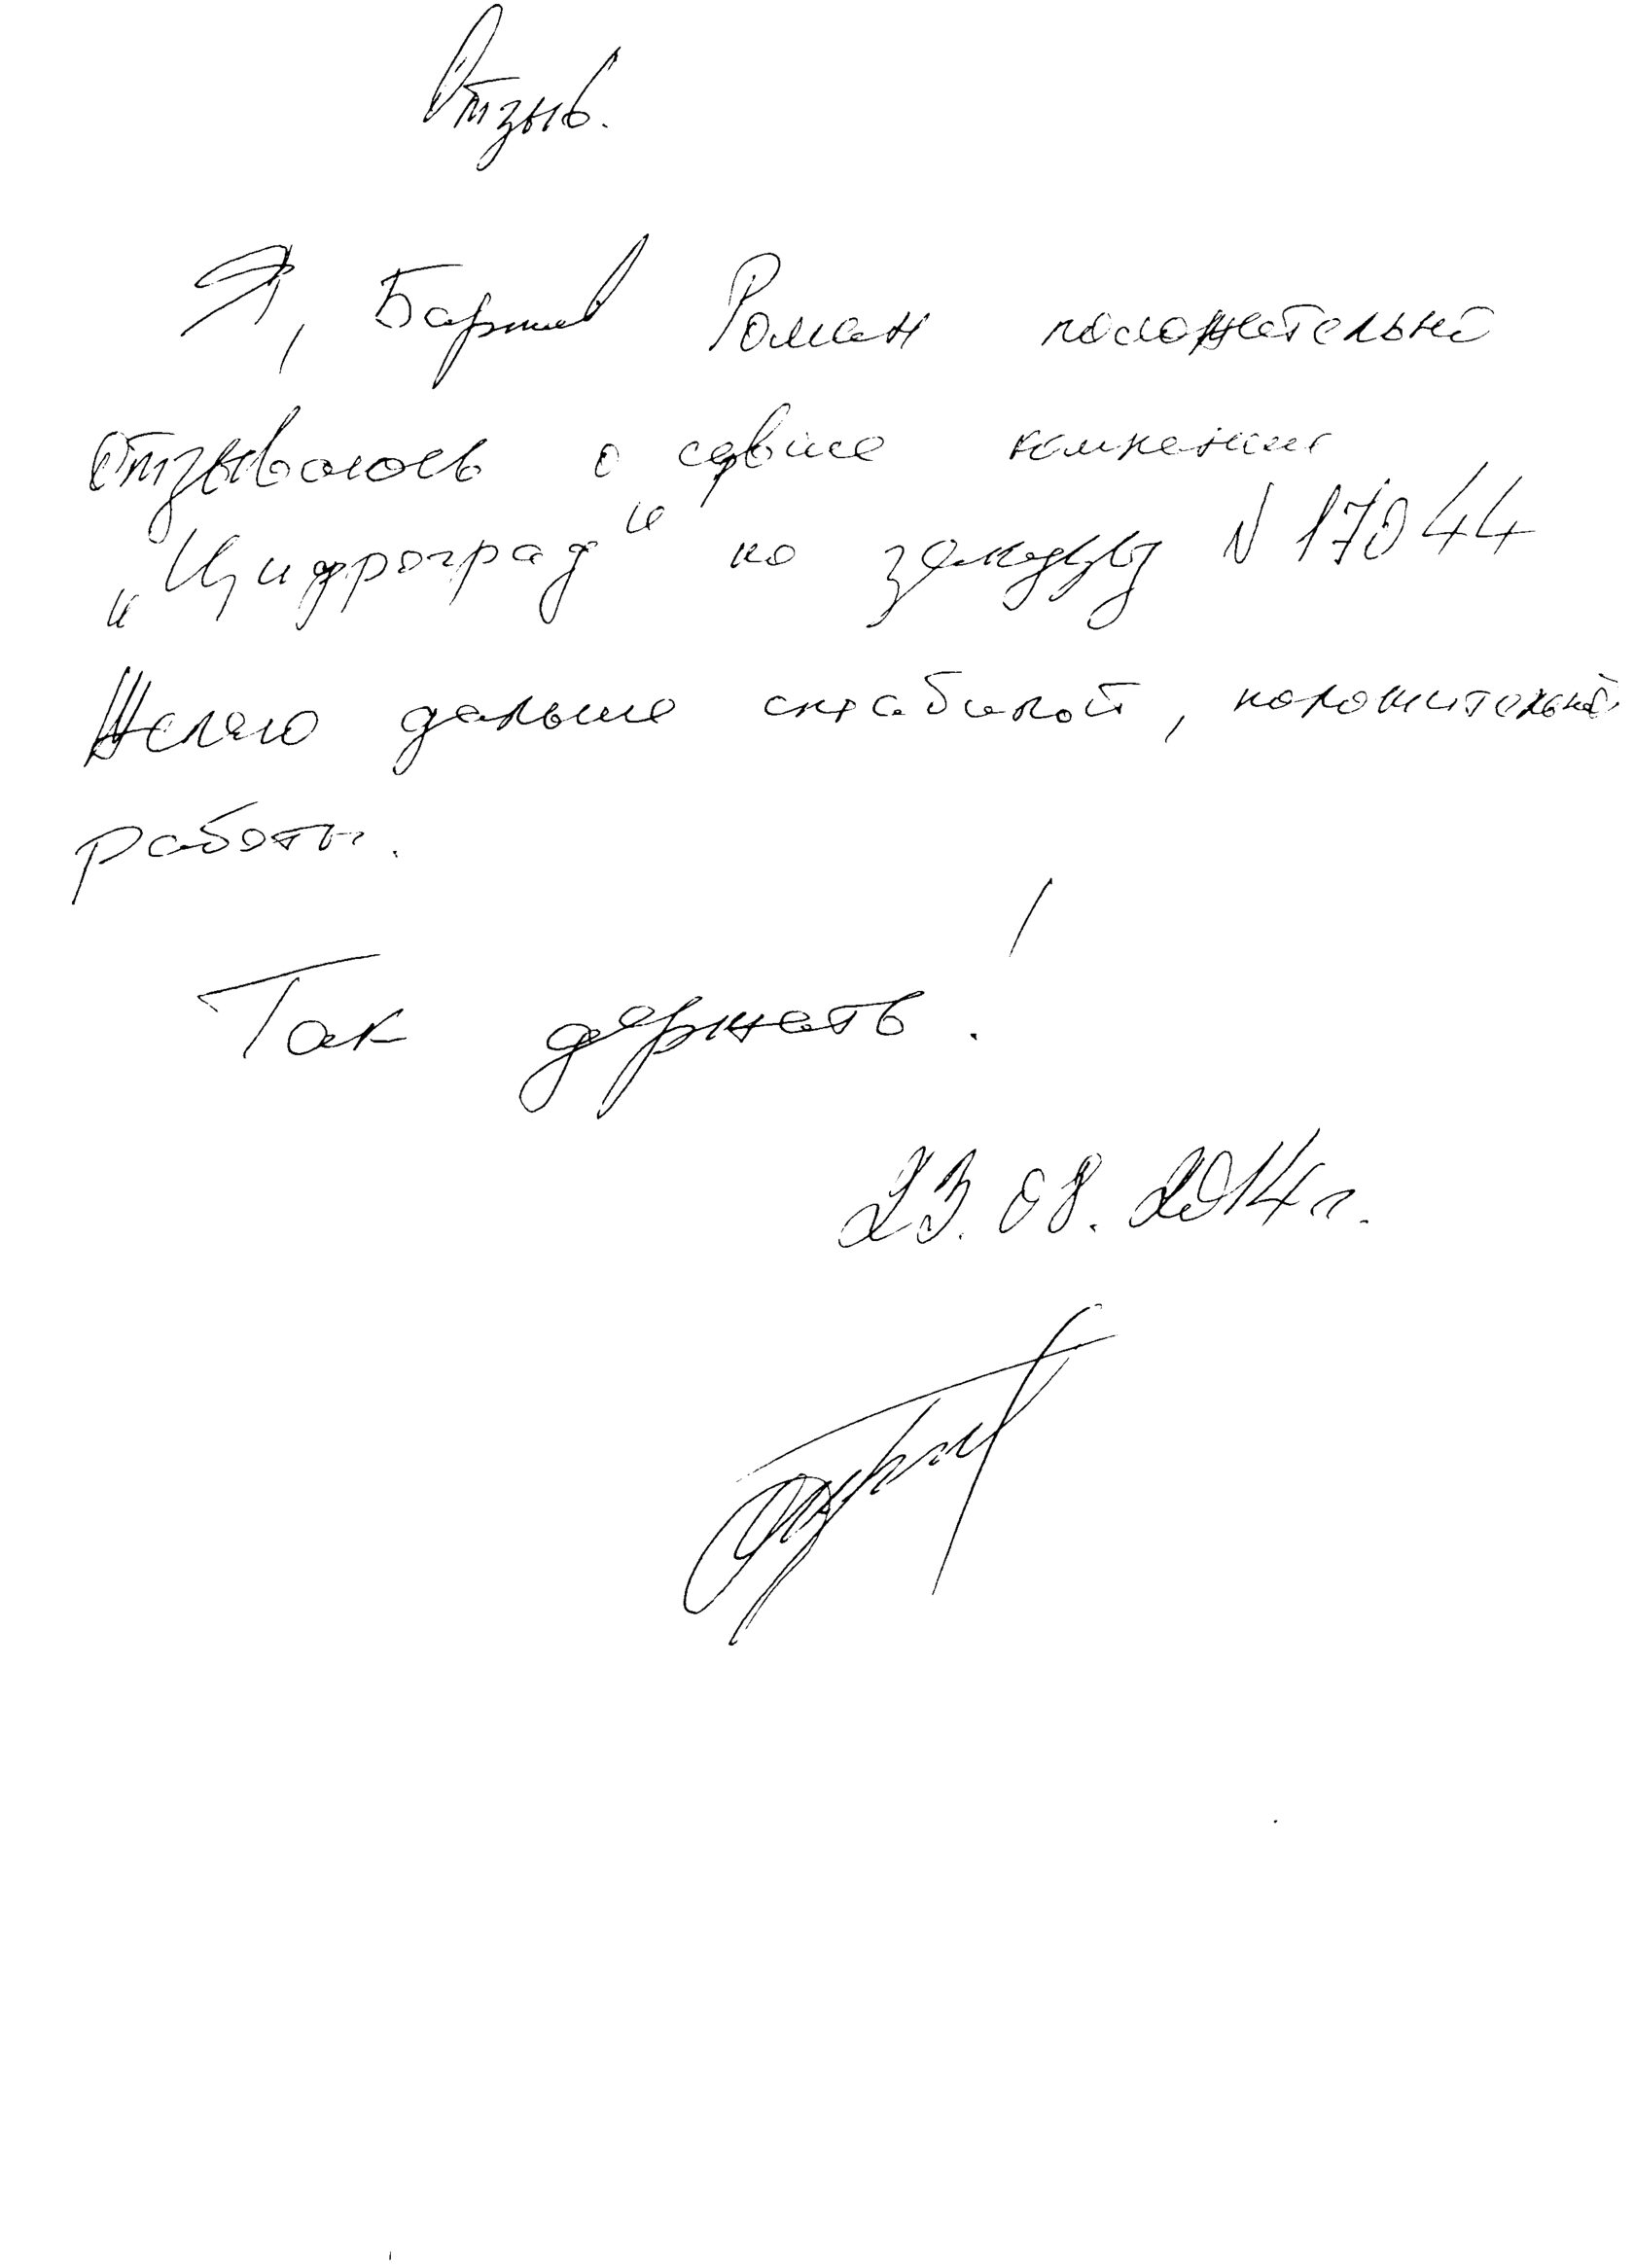 Отзыв.
Я, Роман положительно
отзываюсь о сервисе компании
"Цифроград" по заказу N 17044
Желаю дальше стабильной, положительной
работы.
Так держать!
23.08.2014г.